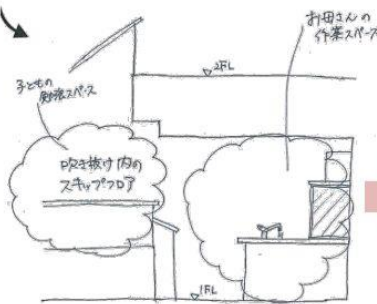 お母さんの
作業スペース
2FL
子どもの
勉強スペース
吹き抜け内の
スキップフロア
1FL